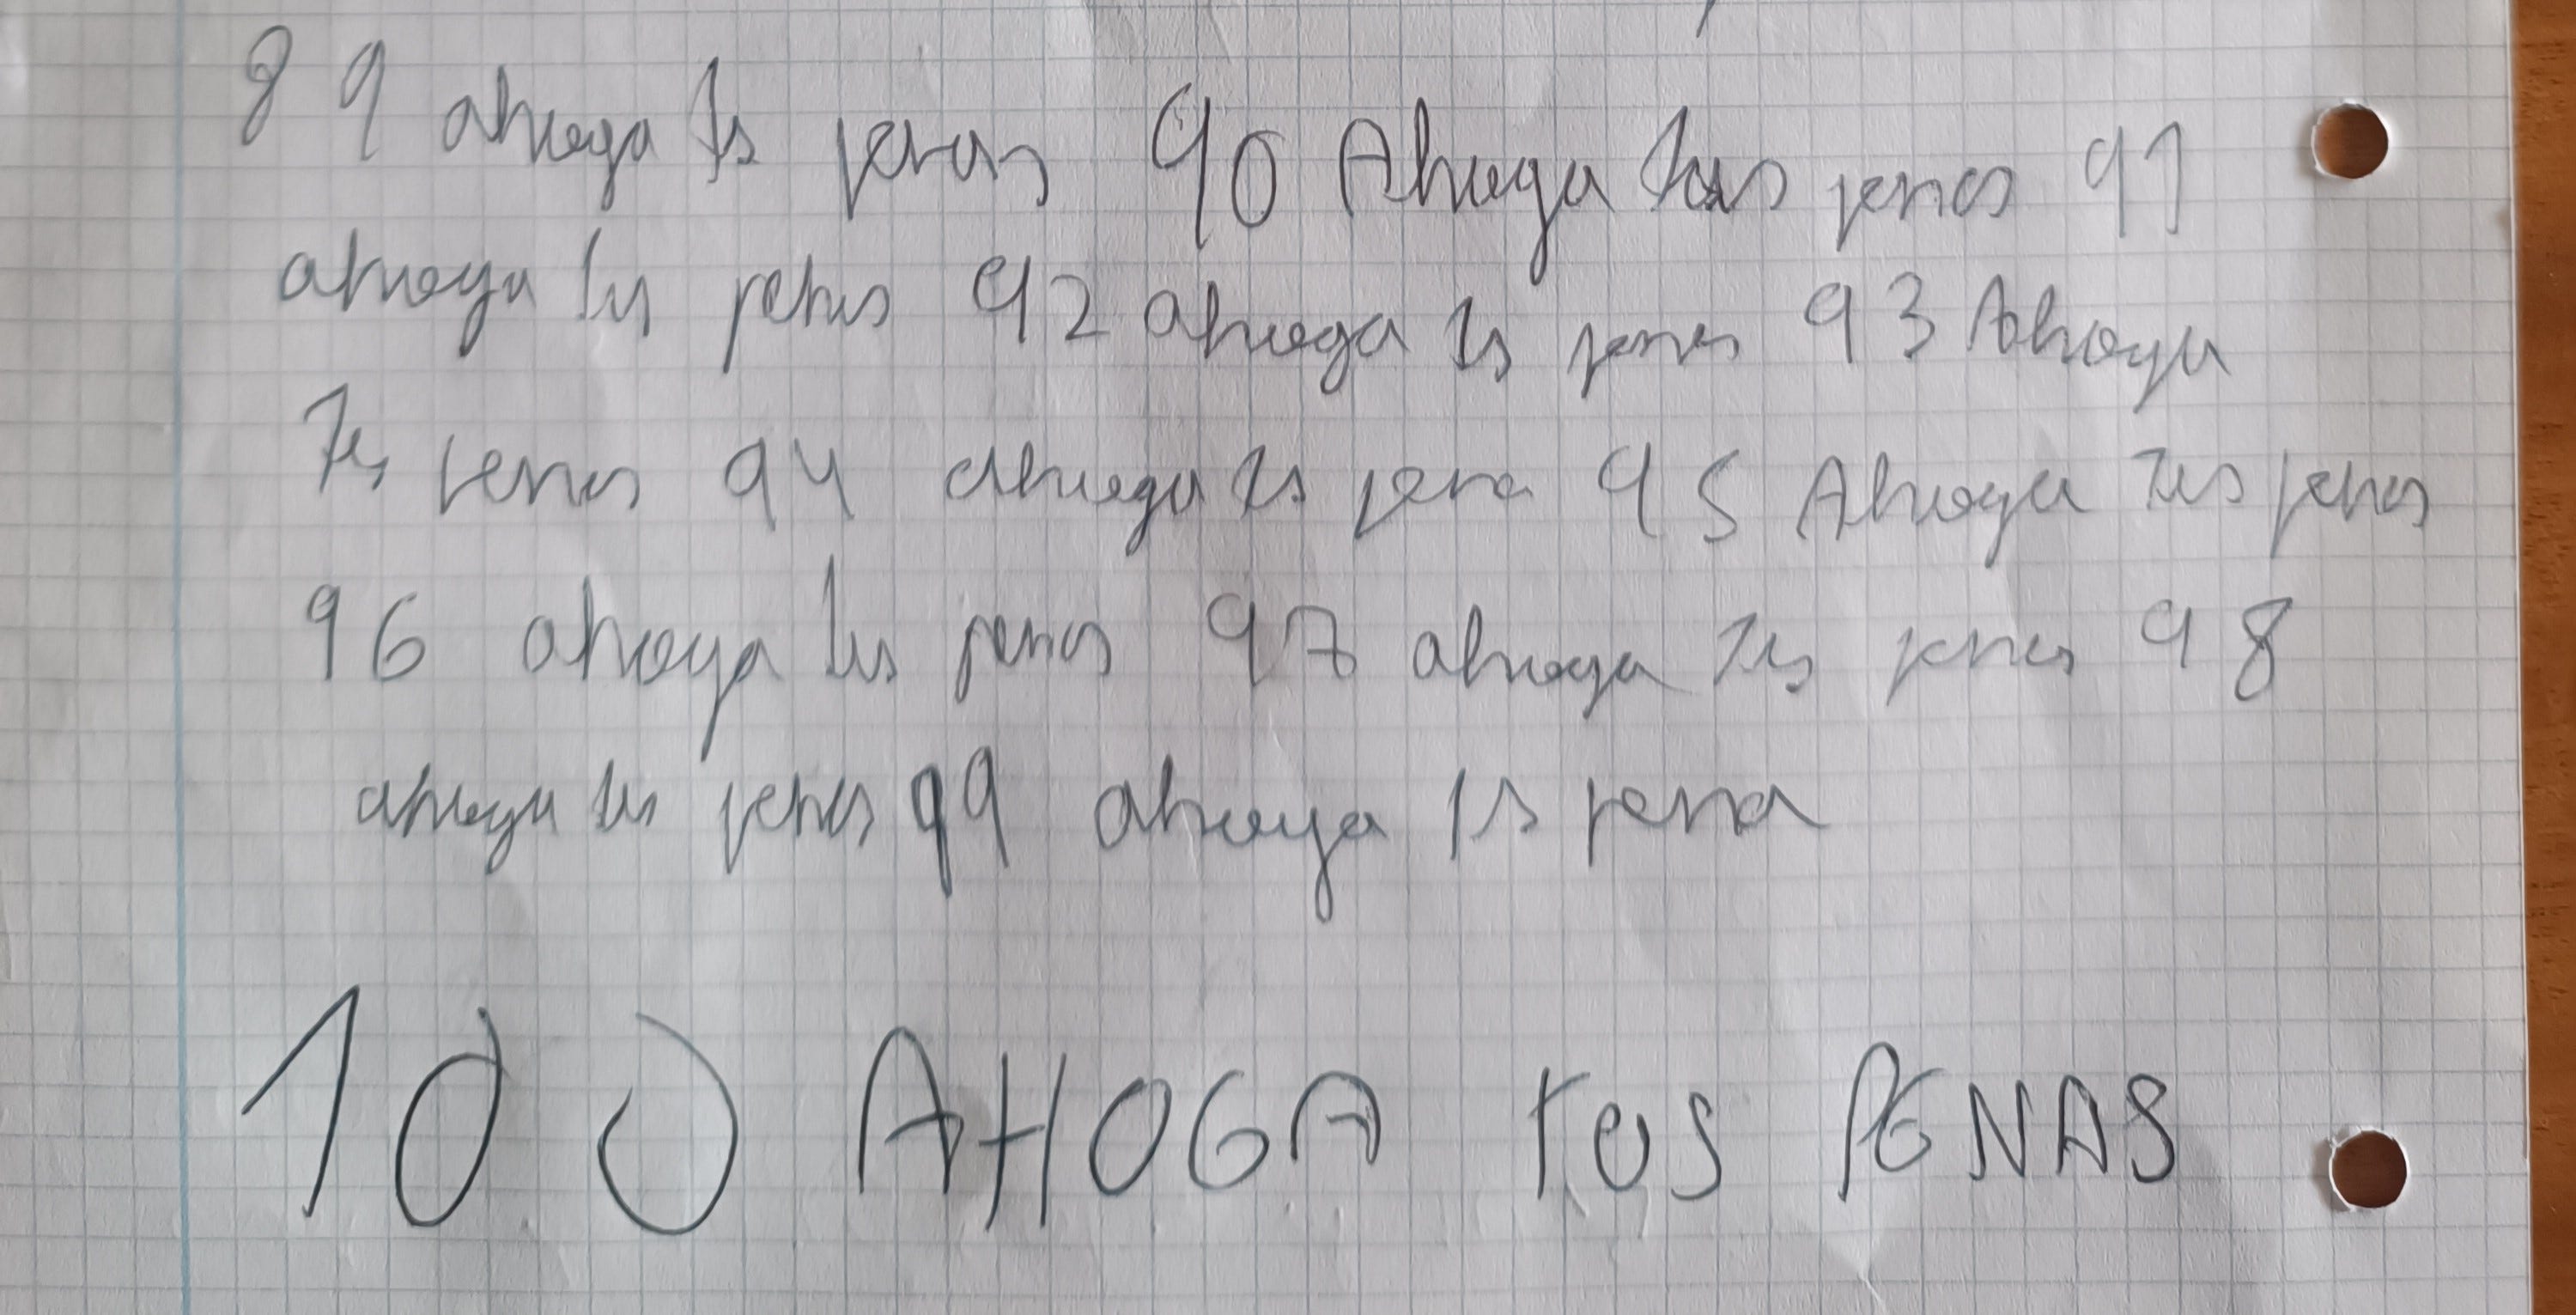 89 ahoga tus penas 90 Ahoga tus penas 91
ahoga tus penas 92 ahoga tus penas 93 Ahoga
tus penas 94 ahoga tus pena 95 Ahoga tus penas
96 ahoga tus penas 97 ahoga tus penas 98
ahoga tus penas 99 ahoga tus pena
100 AHOGA tus PENAS